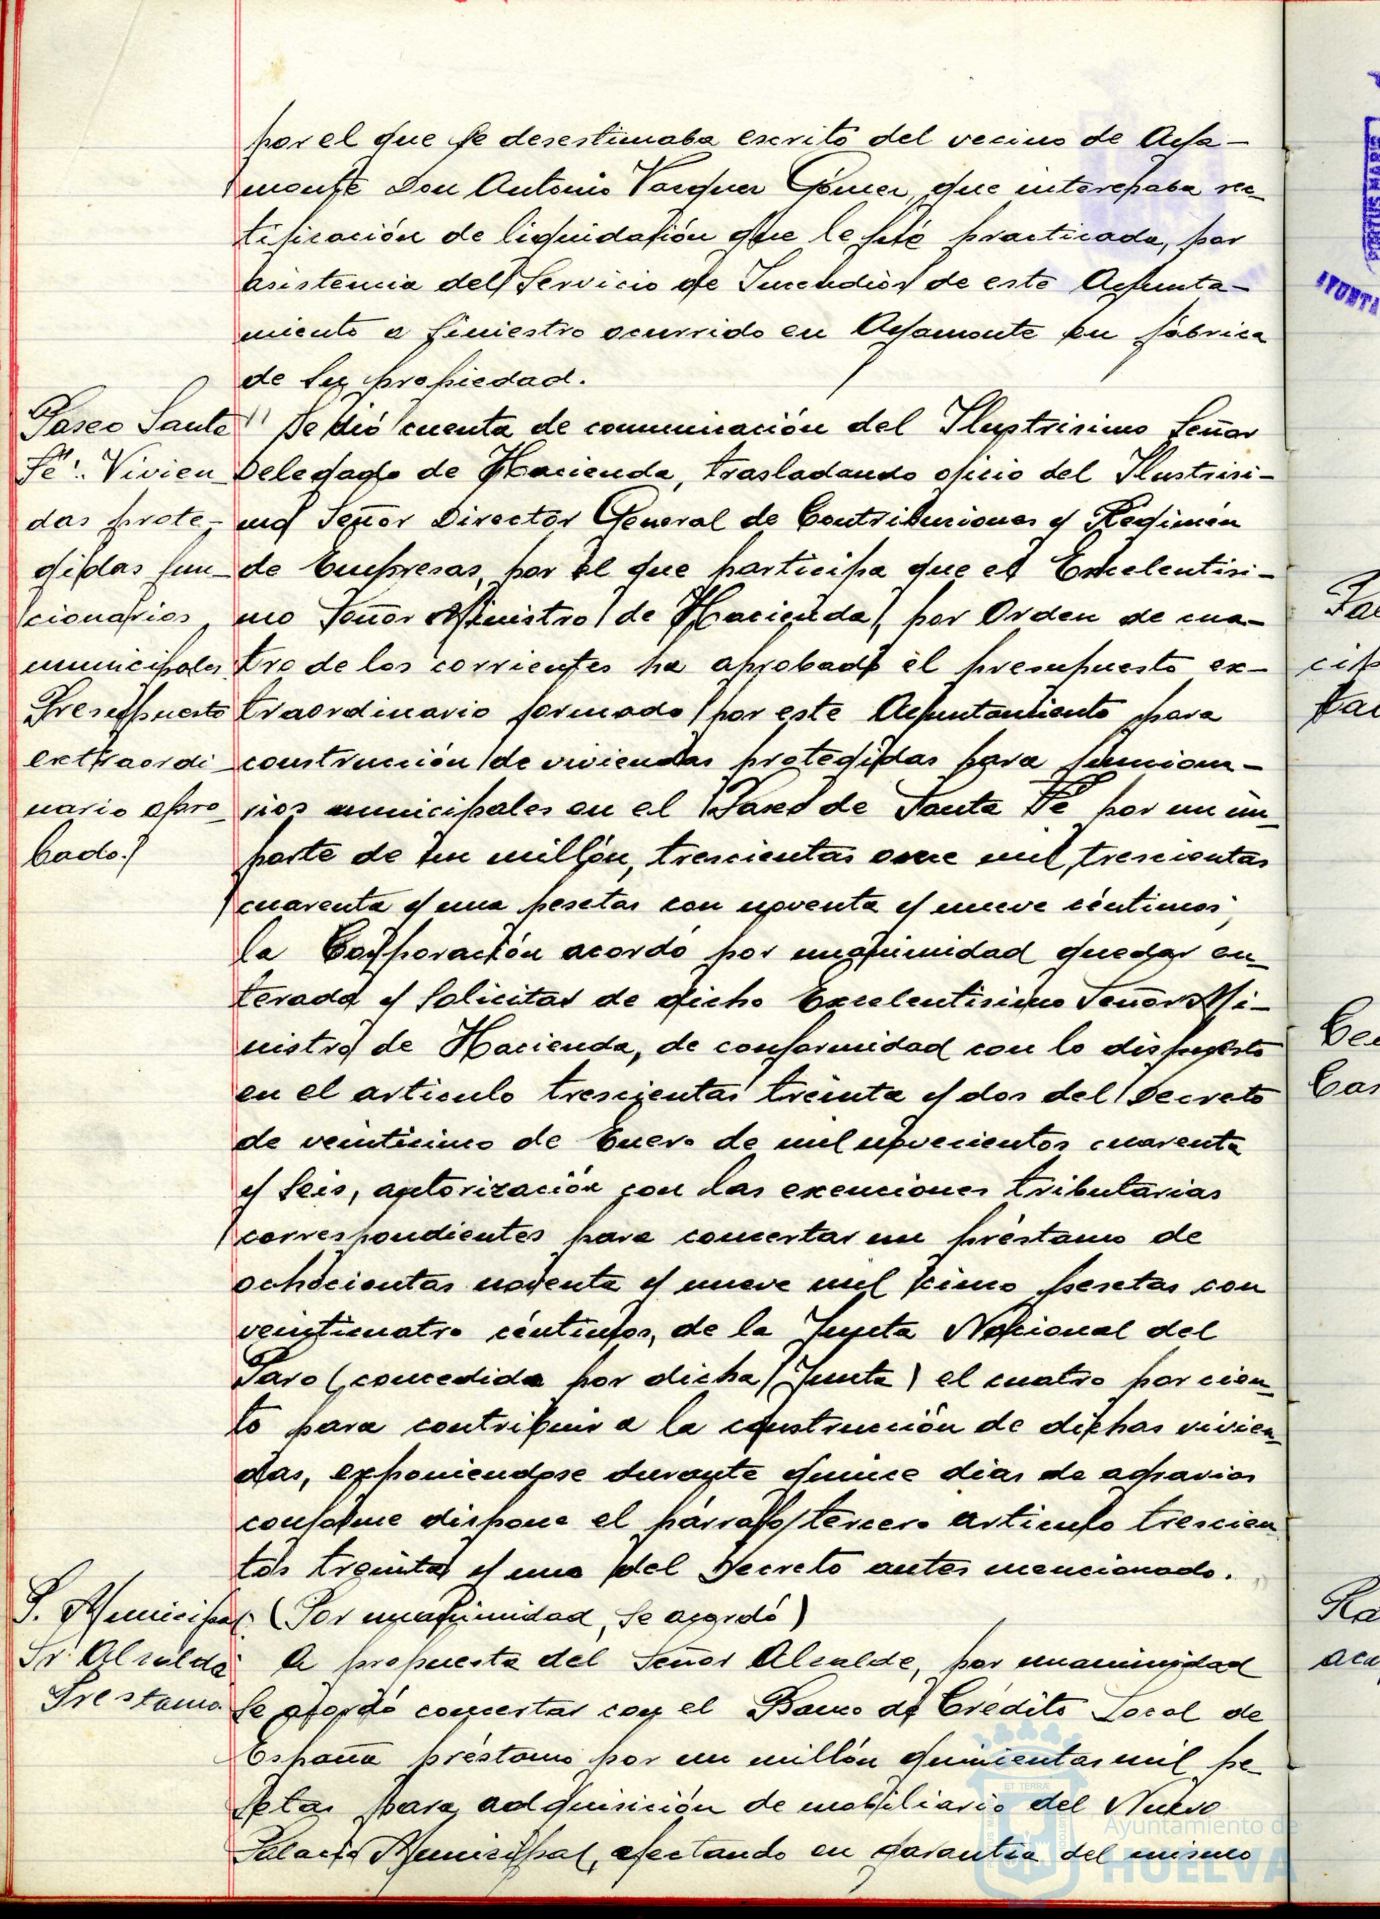 por el que se desestimaba escrito del vecino de Aya-
monte Don Antonio Vazquez Gómez, que interesaba rec-
tificación de liquidación que le fué practicada, por
asistencia del Servicio de Incendios de este Ayunta-
miento a siniestro ocurrido en Ayamonte en fábrica
de su propiedad.
Paseo Santa
Fé: Vivien
das prote-
gidas fun-
cionarios
municipales
Presupuesto
extraordi-
nario apro-
bado.
Se dió cuenta de comunicación del Ilustrisimo Señor
Delegado de Hacienda, trasladando oficio del Ilustrisi-
mo Señor Director General de Contribuciones y Regimén
de Empresas, por el que participa que el Excelentisi-
mo Señor Ministro de Hacienda, por Orden de cua-
tro de los corrientes ha aprobado el presupuesto ex-
traordinario formado por este Ayuntamiento para
construcción de viviendas protegidas para funciona-
rios municipales en el Paseo de Santa Fé por un im-
porte de un millón, trescientas once mil, trescientas
cuarenta y una pesetas con noventa y nueve céntimos;
la Corporación acordó por unanimidad quedar en-
terada y solicitar de dicho Excelentisimo Señor Mi-
nistro de Hacienda, de conformidad con lo dispuesto
en el articulo trescientas treinta y dos del Decreto
de veinticinco de Enero de mil novecientos cuarenta
y seis, autorización con las exenciones tributarias
correspondientes para concertar un préstamo de
ochocientas noventa y nueve mil cinco pesetas con
veinticuatro céntimos, de la Junta Nacional del
Paro (concedida por dicha Junta) el cuatro por cien-
to para contribuir a la construcción de dichas vivien-
das, exponiendose durante quince dias de agravios
conforme dispone el párrafo tercero articulo trescien
tos treinta y uno del Decreto antes mencionado.
P. Municipal
Sr. Alcalde
Prestamo.
(Por unanimidad, se acordó)
A propuesta del Señor Alcalde, por unanimidad
se acordó concertar con el Banco de Crédito Local de
España préstamo por un millón quinientas mil pe-
setas para adquisición de mobiliario del Nuevo
Palacio Municipal, afectando en garantia del mismo
PORTUS MARIS
ET TERRÆ
Ayuntamiento de
HUELVA